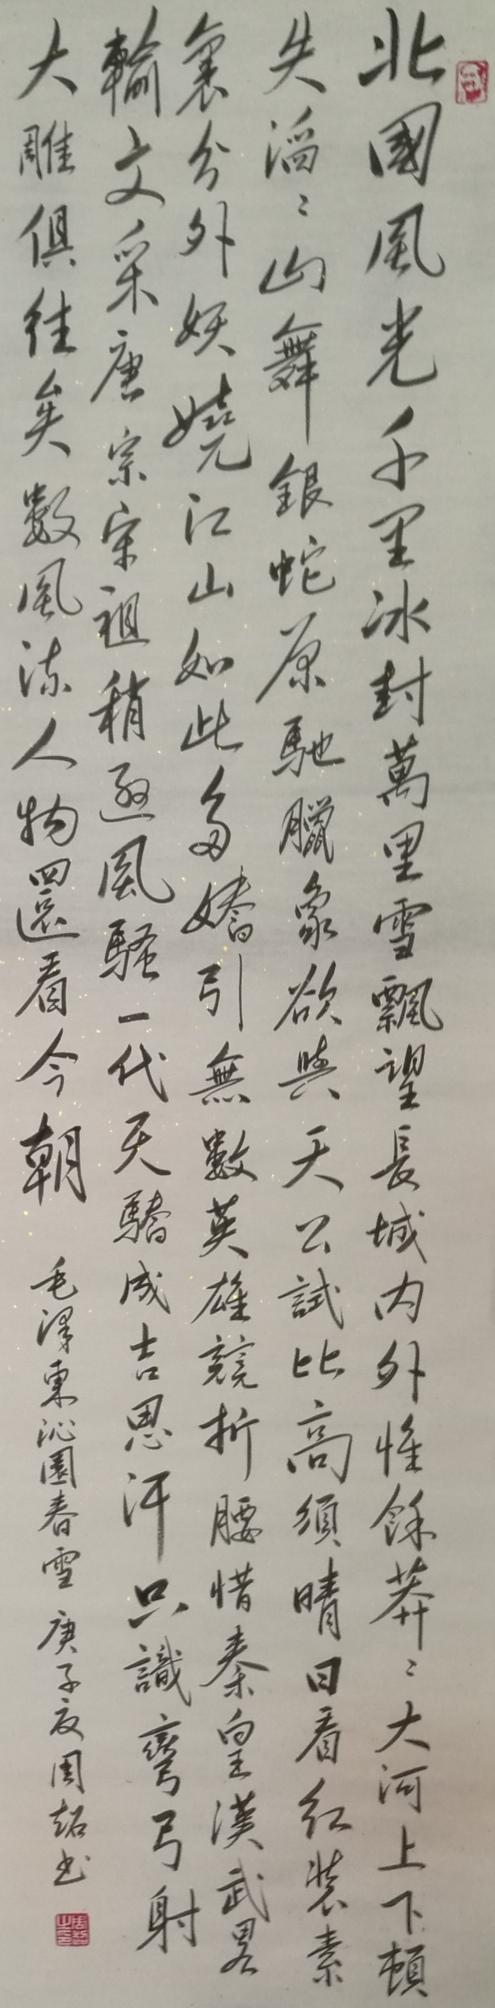 北國風光千里冰封萬里雪飄望長城内外惟餘莽〻大河上下頓
失滔〻山舞銀蛇原馳臘象欲與天公試比高須晴日看紅裝素
裹分外妖嬈江山如此多嬌引無數英雄競折腰惜秦皇漢武畧
輸文采唐宗宋祖稍遜風騷一代天驕成吉思汗只識彎弓射
大雕俱往矣數風流人物還看今朝
毛澤東沁園春雪 庚子夏周书